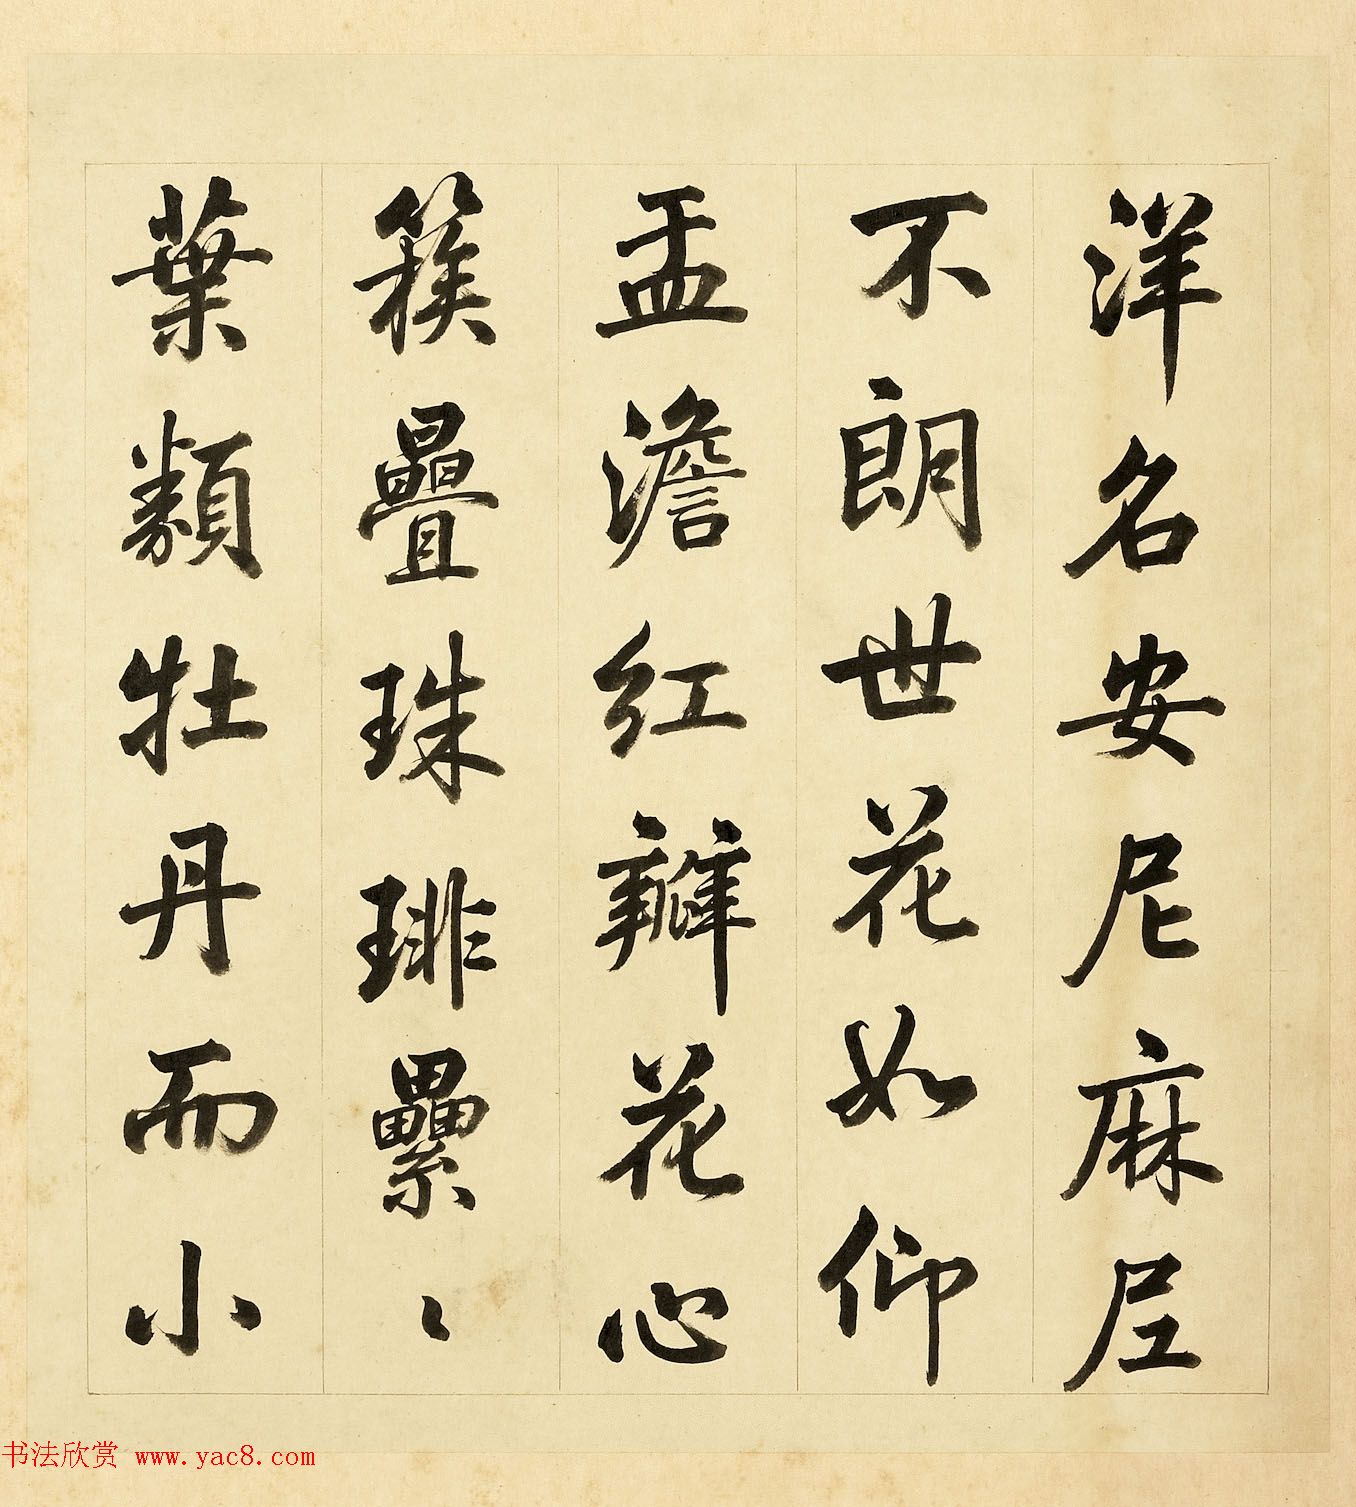 洋名安尼麻尼
不朗世花如仰
盂澹紅瓣花心
簇疊珠琲纍、
葉類牡丹而小
书法欣赏 www.yac8.com